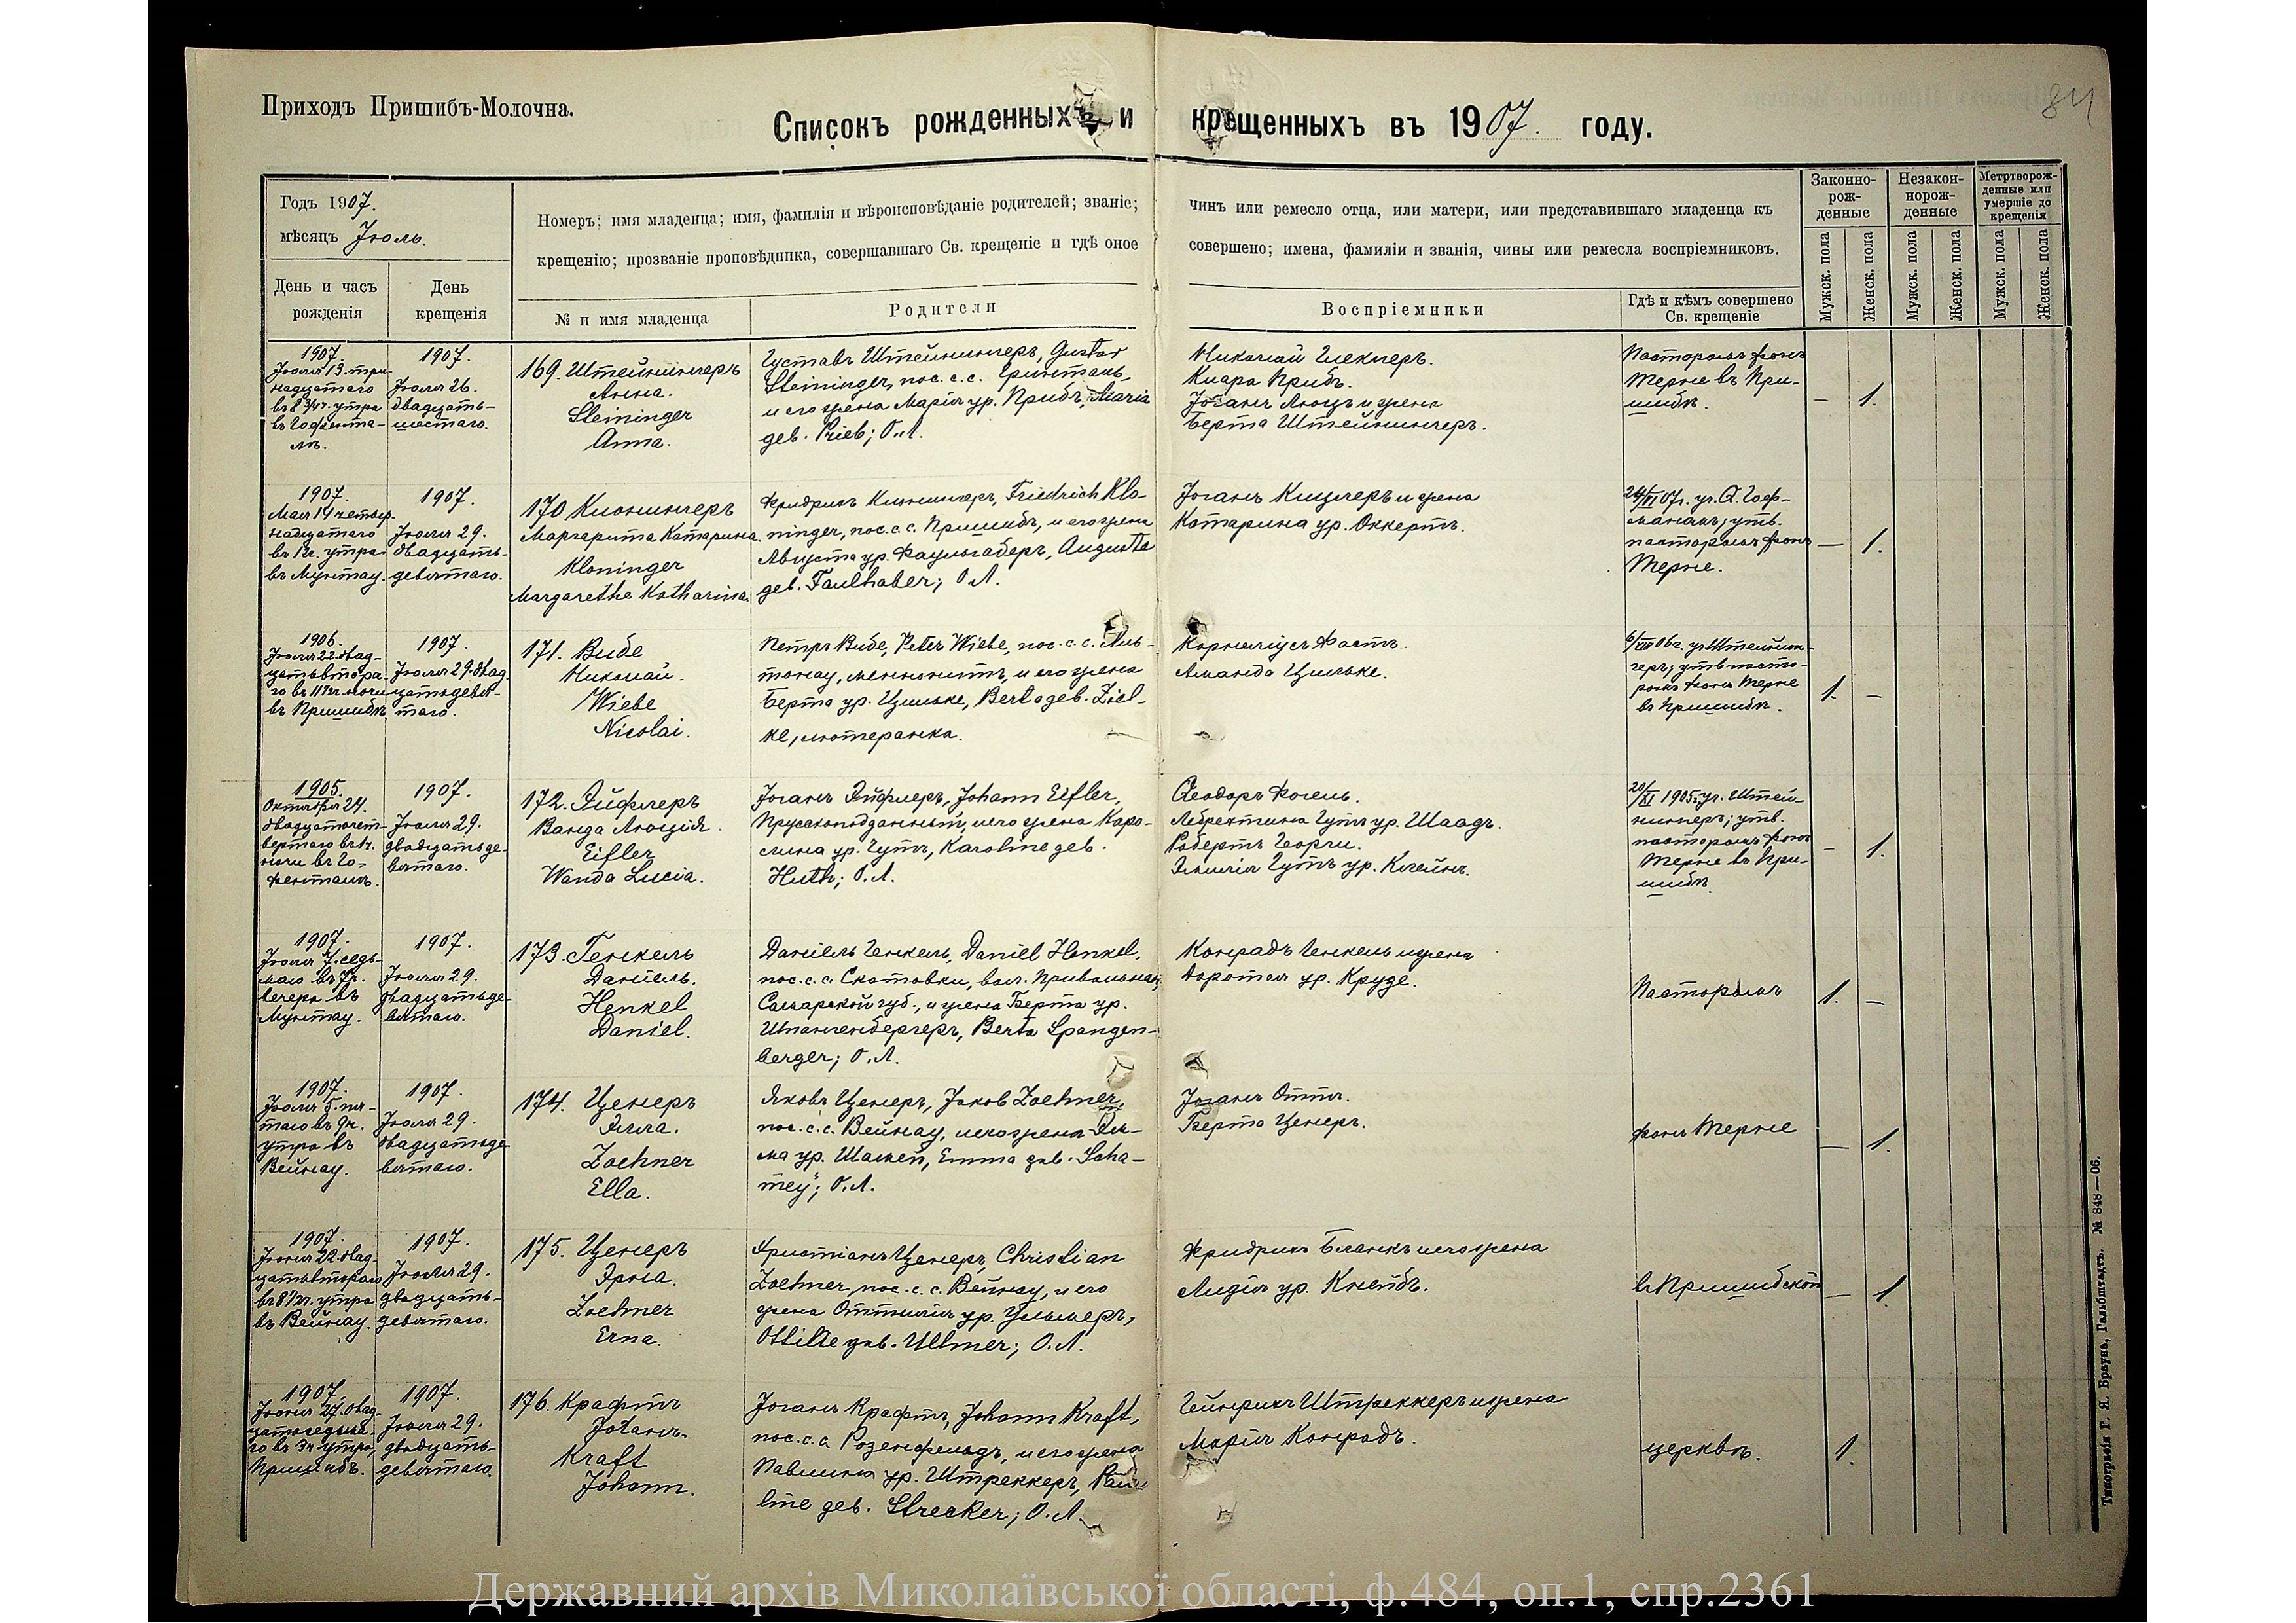 Приходъ Пришибъ-Молочна.
84
Списокъ рожденныхъ и крещенныхъ въ 1907. году.
Годъ 1907.
мѣсяцъ Июль.
Номеръ; имя младенца; имя, фамилія и вѣроисповѣданіе родителей; званіе; чинъ или ремесло отца, или матери, или представившаго младенца къ
крещенію; прозваніе проповѣдника, совершавшаго Св. крещеніе и гдѣ оное совершено; имена, фамиліи и званія, чины или ремесла воспріемниковъ.
День и часъ рожденія
День крещенія
№ и имя младенца
Родители
Воспріемники
Гдѣ и кѣмъ совершено Св. крещеніе
Законно-рож-денные
Незакон-норож-денные
Метртворож-денные или умершіе до крещенія
Мужск. пола
Женск. пола
Мужск. пола
Женск. пола
Мужск. пола
Женск. пола
1907.
Июля 13. три-
надцатаго
въ 8 3/4 ч. утра
въ Гофента-
лѣ.
1907.
Июля 26.
двадцать-
шестаго.
169. Штейнингеръ
Анна.
Steininger
Anna.
Густавъ Штейнингеръ, Gustav
Steininger, пос. с. с. Гринталь,
и его жена Марія ур. Прибъ, Maria
дев. Prieb; О.Л.
Николай Глекнеръ.
Клара Прибъ.
Йоганъ Люцъ и жена
Берта Штейнингеръ.
Пасторомъ фонъ
Терне въ При-
шибѣ.
– 1.
1907.
Мая 14 четыр-
надцатаго
въ 1 ч. утра
въ Мунтау.
1907.
Июля 29.
двадцать-
девятаго.
170 Клонингеръ
Маргарита Катарина.
Kloninger
Margarethe Katharina.
Фридрихъ Клонингеръ, Friedrich Klo-
ninger, пос. с. с. Пришибъ, и его жена
Августа ур. Фаульгаберъ, Auguste
дев. Faulhaber; О.Л.
Йоганъ Кицлеръ и жена
Катарина ур. Оккертъ.
07 г. уч. Гоф-
маномъ; утв.
пасторомъ фонъ
Терне.
– 1.
1906.
Июля 22. двад-
цатьвтора-
го въ 11 1/2 ч. ночи
въ Пришибѣ
1907.
Июля 29. двад-
цатьдевя-
таго.
171. Вибе
Николай.
Wiebe
Nicolai.
Петръ Вибе, Peter Wiebe, пос. с. с. Аль-
тонау, меннонитъ, и его жена
Берта ур. Цильке, Berta дев. Ziel-
ke, лютеранка.
Корнеліусъ Фастъ.
Аманда Цильке.
6/VIII 06 г. уч. Штейнин-
геръ; утв. пасто-
ромъ фонъ Терне
въ Пришибѣ.
1. –
1905.
Октября 24.
двадцатьчет-
вертаго въ 1 ч.
ночи въ Го-
фенталѣ.
1907.
Июля 29.
двадцатьде-
вятаго.
172. Эйфлеръ
Ванда Люція.
Eifler
Wanda Lucia.
Йоганъ Эйфлеръ, Johann Eifler,
Прусскоподданный, и его жена Каро-
лина ур. Гутъ, Karoline дев.
Huth; О.Л.
Ѳеодоръ Фогель.
Лебрехтина Гутъ ур. Шаадъ.
Робертъ Георги.
Эмилія Гутъ ур. Клейнъ.
20/XI 1905 г. уч. Штей-
нингеръ; утв.
пасторомъ фонъ
Терне въ При-
шибѣ.
– 1.
1907.
Июля 7. седь-
маго въ 7 ч.
вечера въ
Мунтау.
1907.
Июля 29.
двадцатьде-
вятаго.
173. Генкель
Даніель.
Henkel
Daniel.
Даніель Генкель, Daniel Henkel,
пос. с. с. Скатовки, вол. Привольная,
Самарской губ., и жена Берта ур.
Шпангенбергеръ, Berta Spangen-
berger; О.Л.
Конрадъ Генкель и жена
Доротея ур. Круде.
Пасторомъ
1. –
1907.
Июля 5. пя-
таго въ 9 ч.
утра въ
Вейнау.
1907.
Июля 29.
двадцатьде-
вятаго.
174. Ценеръ
Элла.
Zoehner
Ella.
Яковъ Ценеръ, Jakob Zoehner,
пос. с. с. Вейнау, и его жена Эм-
ма ур. Шамей, Emma дев. Scha-
mey; О.Л.
Йоганъ Оттъ.
Берта Ценеръ.
фонъ Терне
– 1.
1907.
Июня 22. двад-
цатьвтораго
въ 8 1/2 ч. утра
въ Вейнау.
1907.
Июля 29.
двадцать-
девятаго.
175. Ценеръ
Эрна.
Zoehner
Erna.
Христіанъ Ценеръ, Christian
Zoehner, пос. с. с. Вейнау, и его
жена Оттилія ур. Ульмеръ,
Ottilie дев. Ullmer; О.Л.
Фридрихъ Бланкъ и его жена
Лидія ур. Кнейбъ.
въ Пришибской
– 1.
1907.
Июня 27. двад-
цатьседьма-
го въ 3 ч. утра,
Пришибъ.
1907.
Июля 29.
двадцать-
девятаго.
176. Крафтъ
Йоганъ.
Kraft
Johann.
Йоганъ Крафтъ, Johann Kraft,
пос. с. с. Розенфельдъ, и его жена
Павлина ур. Штреккеръ, Pau-
line дев. Strecker; О.Л.
Гейнрихъ Штреккеръ и жена
Марія Конрадъ.
церквѣ.
1.
Типографія Г. Я. Брауна, Гальбштадтъ. № 848—06.
Державний архів Миколаївської області, ф.484, оп.1, спр.2361